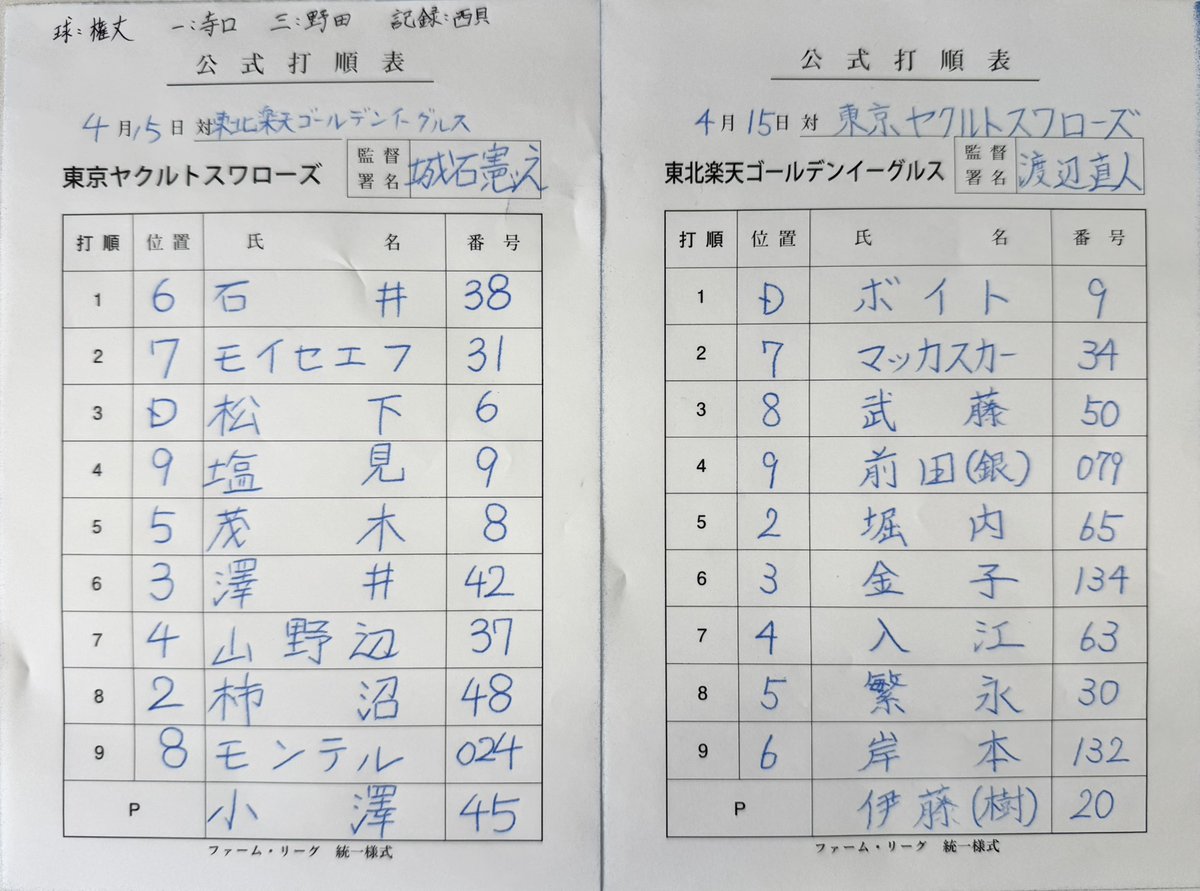 球:権丈 一:寺口 三:野田 記録:西貝
公式打順表
4月15日 対 東北楽天ゴールデンイーグルス
東京ヤクルトスワローズ 監督署名 城石憲之
打順 位置 氏名 番号
1 6 石井 38
2 7 モイセエフ 31
3 D 松下 6
4 9 塩見 9
5 5 茂木 8
6 3 澤井 42
7 4 山野辺 37
8 2 柿沼 48
9 8 モンテル 024
P 小澤 45
ファーム・リーグ 統一様式
公式打順表
4月15日 対 東京ヤクルトスワローズ
東北楽天ゴールデンイーグルス 監督署名 渡辺直人
打順 位置 氏名 番号
1 D ボイト 9
2 7 マッカスカー 34
3 8 武藤 50
4 9 前田(銀) 079
5 2 堀内 65
6 3 金子 134
7 4 入江 63
8 5 繁永 30
9 6 岸本 132
P 伊藤(樹) 20
ファーム・リーグ 統一様式